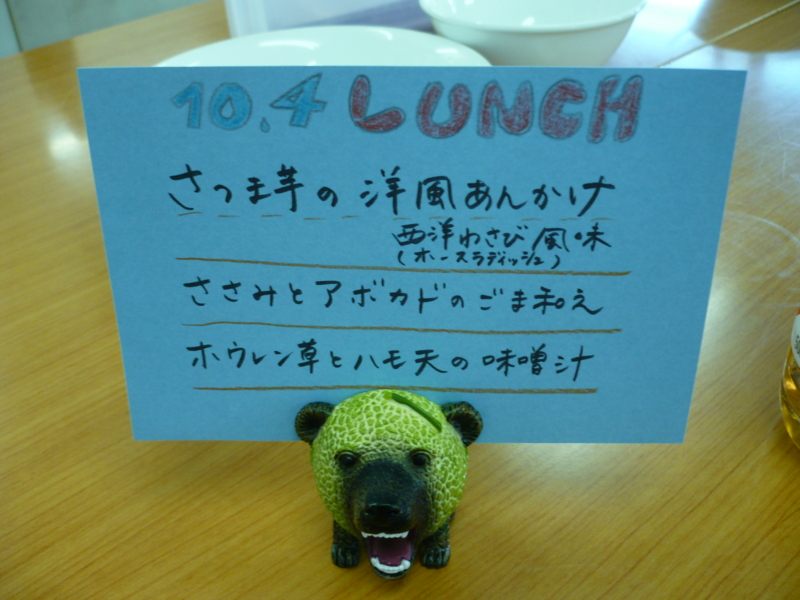 10.4 LUNCH
さつま芋の洋風あんかけ
西洋わさび風味
(ホースラディッシュ)
ささみとアボカドのごま和え
ホウレン草とハモ天の味噌汁